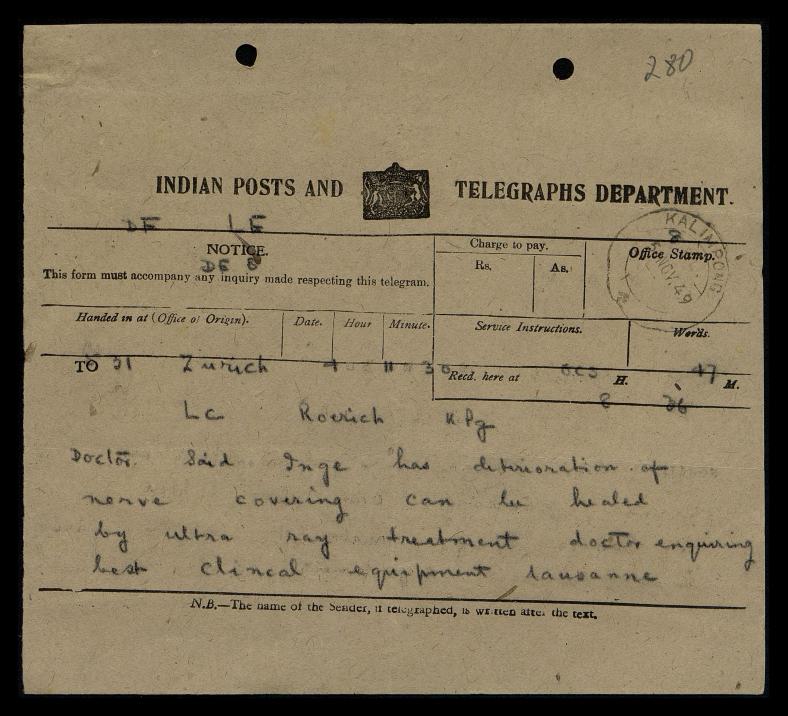 280
INDIAN POSTS AND TELEGRAPHS DEPARTMENT.
DE LE
8
KALIMPONG
NOV. 49
NOTICE.
DE 8
This form must accompany any inquiry made respecting this telegram.
Charge to pay.
Rs. As.
Office Stamp.
Handed in at (Office of Origin). Date. Hour Minute.
Service Instructions. Words.
TO 31 Zurich 4 11 30
Recd. here at H. 47 M.
8 36
Lc Roerich K Pg
Doctor Said Inge has deterioration of
nerve covering can be healed
by ultra ray treatment doctor enquiring
best clincal equipment lausanne
N.B.—The name of the Sender, if telegraphed, is written after the text.